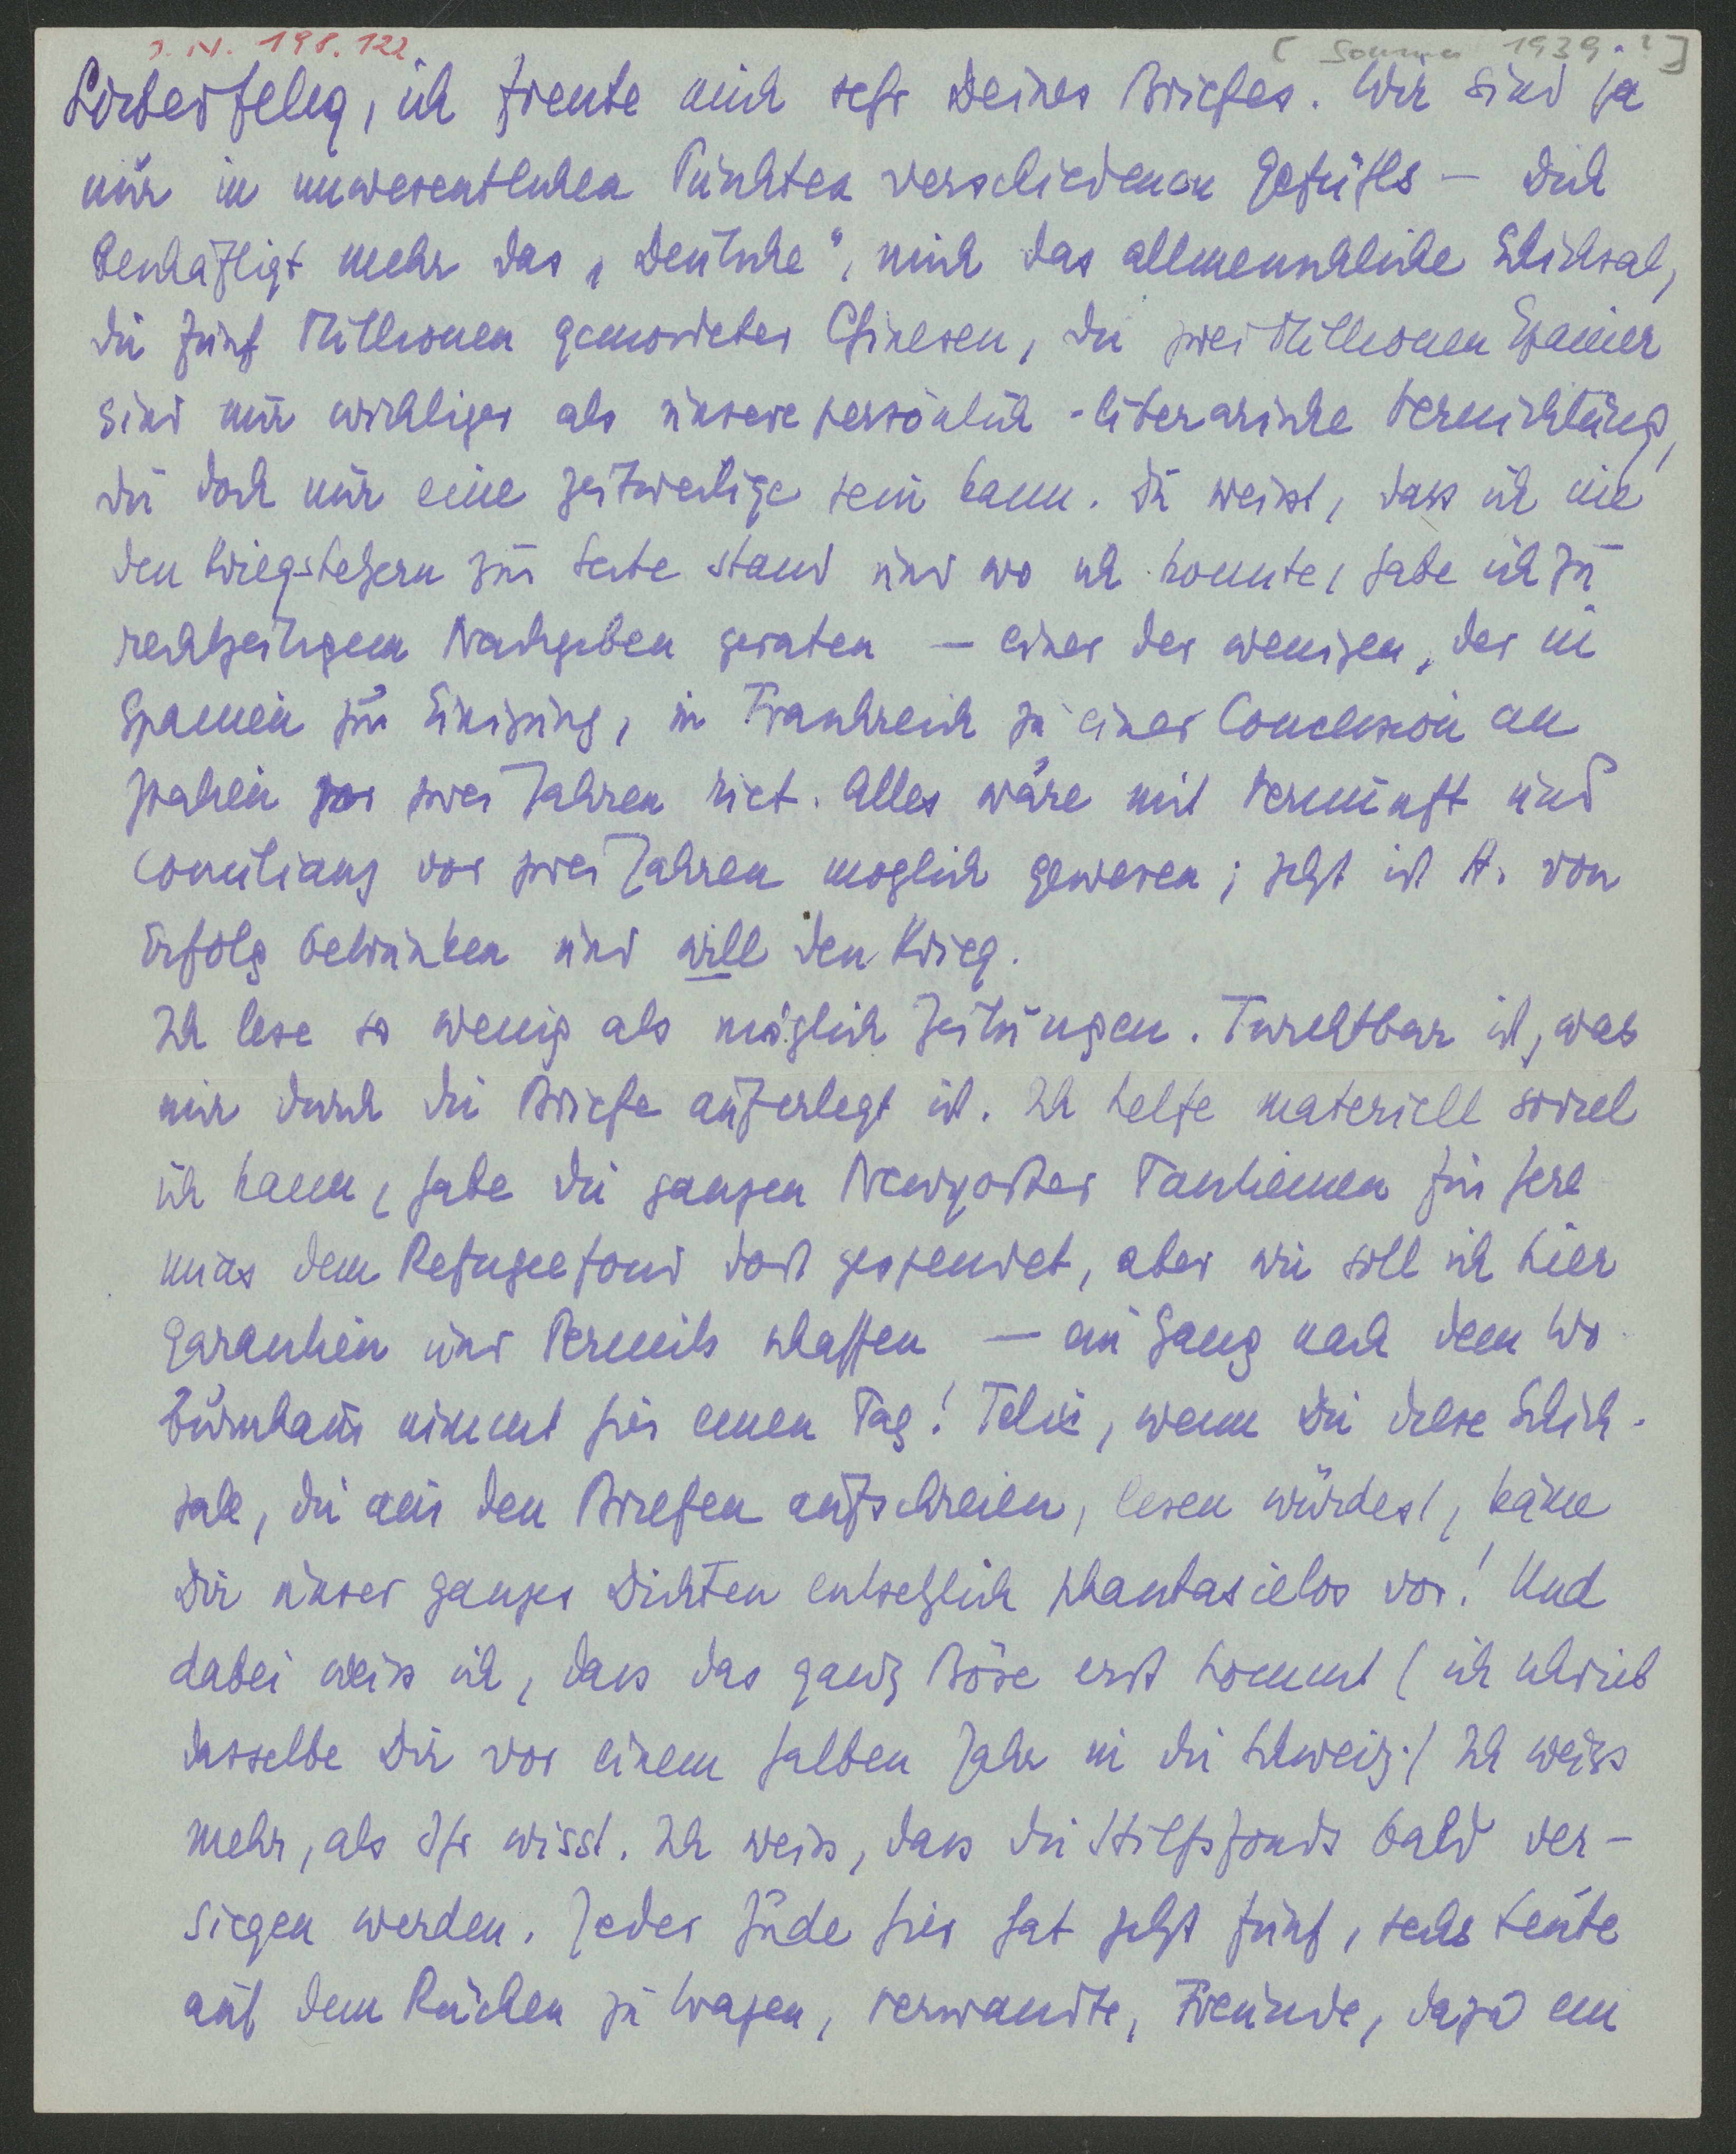 I. N. 198.122
[Sommer 1939?]
Lieber Felix, ich freute mich sehr Deines Briefes. Wir sind ja
nur in unwesentlichen Punkten verschiedenen Gefühls – Dich
beschäftigt mehr das „Deutsche“, mich das allmenschliche Schicksal,
die fünf Millionen gemordeter Chinesen, die zwei Millionen Spanier
sind mir wichtiger als unsere persönlich-literarische Vernichtung,
die doch nur eine zeitweilige sein kann. Du weisst, dass ich nie
den Kriegshetzern zur Seite stand und wo ich konnte, habe ich zu
rechtzeitigem Nachgeben geraten – einer der wenigen, der in
Spanien zur Einigung, in Frankreich zu einer Concession an
Italien vor zwei Jahren riet. Alles wäre mit Vernunft und
Concilianz vor zwei Jahren moglich gewesen; jetzt ist H. von
Erfolg betrunken und will den Krieg.
Ich lese so wenig als möglich Zeitungen. Furchtbar ist, was
mir durch die Briefe auferlegt ist. Ich helfe materiell soviel
ich kann, habe die ganzen Newyorker Tantiemen für Jere
mias dem Refugeefond dort gespendet, aber wie soll ich hier
Garantien und Permits schaffen – ein Gang nach dem Wo
burnhaus nimmt hier einen Tag! Felix, wenn Du diese Schick-
sale, die aus den Briefen aufschreien, lesen würdest, käme
Dir unser ganzes Dichten entsetzlich phantasielos vor! Und
dabei weiss ich, dass das ganz Böse erst kommt (ich schrieb
dasselbe Dir vor einem halben Jahr in die Schweiz.) Ich weiss
mehr, als Ihr wisst. Ich weiss, dass die Hilfsfonds bald ver-
siegen werden. Jeder Jude hier hat jetzt fünf, sechs Leute
auf dem Rücken zu tragen, Verwandte, Freunde, dazu ein